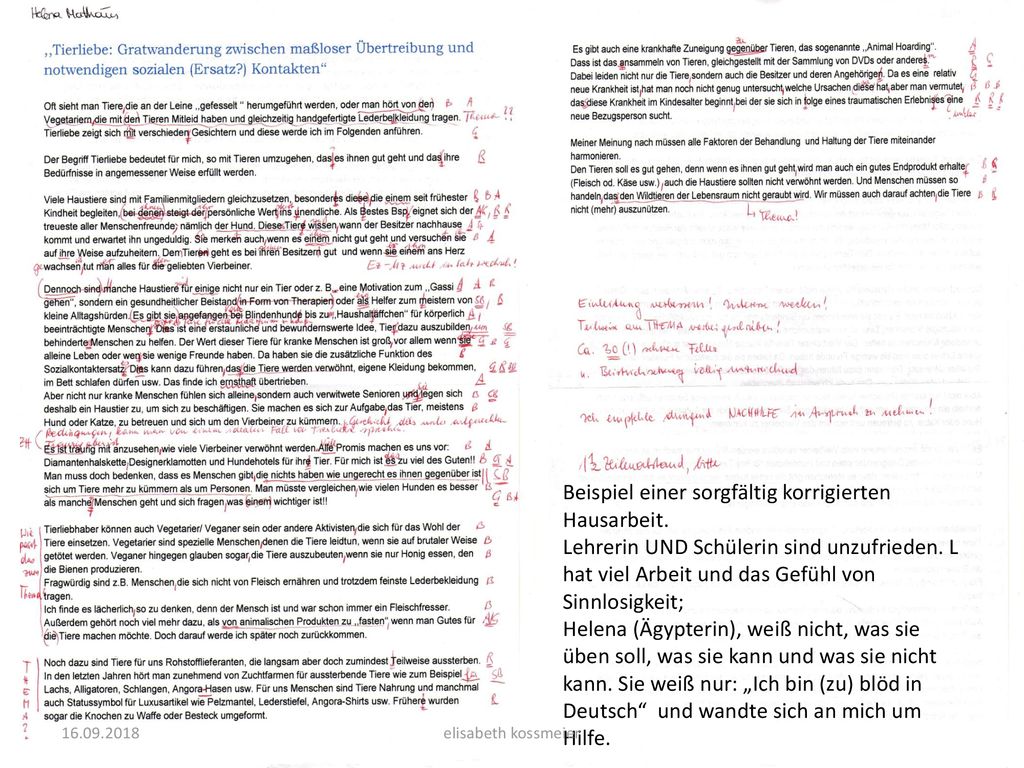 Helena Mathäus
„Tierliebe: Gratwanderung zwischen maßloser Übertreibung und
notwendigen sozialen (Ersatz?) Kontakten“
Oft sieht man Tiere die an der Leine „gefesselt“ herumgeführt werden, oder man hört von den B A
Vegetariern die mit den Tieren Mitleid haben und gleichzeitig handgefertigte Lederbekleidung tragen. Thema ??
Tierliebe zeigt sich mit verschieden Gesichtern und diese werde ich im Folgenden anführen. G
Der Begriff Tierliebe bedeutet für mich, so mit Tieren umzugehen, das es ihnen gut geht und das ihre R
Bedürfnisse in angemessener Weise erfüllt werden.
Viele Haustiere sind mit Familienmitgliedern gleichzusetzen, besonderes diese die einem seit frühester
Kindheit begleiten, bei denen steigt der persönliche Wert ins unendliche. Als Bestes Bsp. eignet sich der
treueste aller Menschenfreunde; nämlich der Hund. Diese Tiere wissen wann der Besitzer nachhause
kommt und erwartet ihn ungeduldig. Sie merken auch wenn es einem nicht gut geht und versuchen sie
auf ihre Weise aufzuheitern. Den Tieren geht es bei ihren Besitzern gut und wenn sie einem ans Herz
gewachsen tut man alles für die geliebten Vierbeiner.
Dennoch sind manche Haustiere für einige nicht nur ein Tier oder z. B. eine Motivation zum „Gassi
gehen“, sondern ein gesundheitlicher Beistand in Form von Therapien oder als Helfer zum meistern von
kleine Alltagshürden. Es gibt sie angefangen bei Blindenhunde bis zu „Haushaltäffchen“ für körperlich
beeinträchtigte Menschen. Dies ist eine erstaunliche und bewundernswerte Idee, Tier dazu auszubilden
behinderte Menschen zu helfen. Der Wert dieser Tiere für kranke Menschen ist groß vor allem wenn sie
alleine Leben oder weg sie wenige Freunde haben. Da haben sie die zusätzliche Funktion des
Sozialkontakersatz. Dies kann dazu führen das die Tiere verwöhnt werden, eigene Kleidung bekommen,
im Bett schlafen dürfen usw. Das finde ich ernsthaft übertrieben.
Aber nicht nur kranke Menschen fühlen sich alleine sondern auch verwitwete Senioren und legen sich
deshalb ein Haustier zu, um sich zu beschäftigen. Sie machen es sich zur Aufgabe das Tier, meistens
Hund oder Katze, zu betreuen und sich um den Vierbeiner zu kümmern.
Es ist traurig mit anzusehen wie viele Vierbeiner verwöhnt werden. Alle Promis machen es uns vor:
Diamantenhalskette Designerklamotten und Hundehotels für ihre Tier. Für mich ist es zu viel des Guten!!
Man muss doch bedenken, dass es Menschen gibt die nichts haben wie ungerecht es ihnen gegenüber ist
sich um Tiere mehr zu kümmern als um Personen. Man müsste vergleichen wie vielen Hunden es besser
als manche Menschen geht und sich fragen was einem wichtiger ist!!
Wie
passt
das
zum
Thema
Tierliebhaber können auch Vegetarier/ Veganer sein oder andere Aktivisten die sich für das Wohl der B
Tiere einsetzen. Vegetarier sind spezielle Menschen denen die Tiere leidtun, wenn sie auf brutaler Weise B
getötet werden. Veganer hingegen glauben sogar die Tiere auszubeuten wenn sie nur Honig essen, den B
die Bienen produzieren.
Fragwürdig sind z.B. Menschen die sich nicht von Fleisch ernähren und trotzdem feinste Lederbekleidung B
tragen.
Ich finde es lächerlich so zu denken, denn der Mensch ist und war schon immer ein Fleischfresser. B
Außerdem gehört noch viel mehr dazu, als von animalischen Produkten zu „fasten“ wenn man Gutes für
die Tiere machen möchte. Doch darauf werde ich später noch zurückkommen.
T
H
E
M
A
?
Noch dazu sind Tiere für uns Rohstofflieferanten, die langsam aber doch zumindest Teilweise aussterben. R
In den letzten Jahren hört man zunehmend von Zuchtfarmen für aussterbende Tiere wie zum Beispiel
Lachs, Alligatoren, Schlangen, Angora-Hasen usw. Für uns Menschen sind Tiere Nahrung und manchmal
auch Statussymbol für Luxusartikel wie Pelzmantel, Lederstiefel, Angora-Shirts usw. Früher wurden
sogar die Knochen zu Waffe oder Besteck umgeformt.
Es gibt auch eine krankhafte Zuneigung gegenüber Tieren, das sogenannte „Animal Hoarding“.
Dass ist das ansammeln von Tieren, gleichgestellt mit der Sammlung von DVDs oder anderes.
Dabei leiden nicht nur die Tiere sondern auch die Besitzer und deren Angehörigen. Da es eine relativ
neue Krankheit ist hat man noch nicht genug untersucht welche Ursachen diese hat aber man vermutet,
das diese Krankheit im Kindesalter beginnt bei der sie sich in folge eines traumatischen Erlebnises eine
neue Bezugsperson sucht.
Meiner Meinung nach müssen alle Faktoren der Behandlung und Haltung der Tiere miteinander
harmonieren.
Den Tieren soll es gut gehen, denn wenn es ihnen gut geht wird man auch ein gutes Endprodukt erhalte
(Fleisch od. Käse usw.) auch die Haustiere sollten nicht verwöhnt werden. Und Menschen müssen so
handeln das den Wildtieren der Lebensraum nicht geraubt wird. Wir müssen auch darauf achten die Tiere
nicht (mehr) auszunützen.
Thema!
Einleitung verbessern! Interesse wecken!
Teilweise am THEMA vorbei geschrieben!
Ca. 30 (!) schwere Fehler
u. Beistrichsetzung völlig unzureichend
Ich empfehle dringend NACHHILFE in Anspruch zu nehmen!
1½ Zeilenabstand, bitte
Beispiel einer sorgfältig korrigierten
Hausarbeit.
Lehrerin UND Schülerin sind unzufrieden. L
hat viel Arbeit und das Gefühl von
Sinnlosigkeit;
Helena (Ägypterin), weiß nicht, was sie
üben soll, was sie kann und was sie nicht
kann. Sie weiß nur: „Ich bin (zu) blöd in
Deutsch“ und wandte sich an mich um
Hilfe.
16.09.2018
elisabeth kossmeier